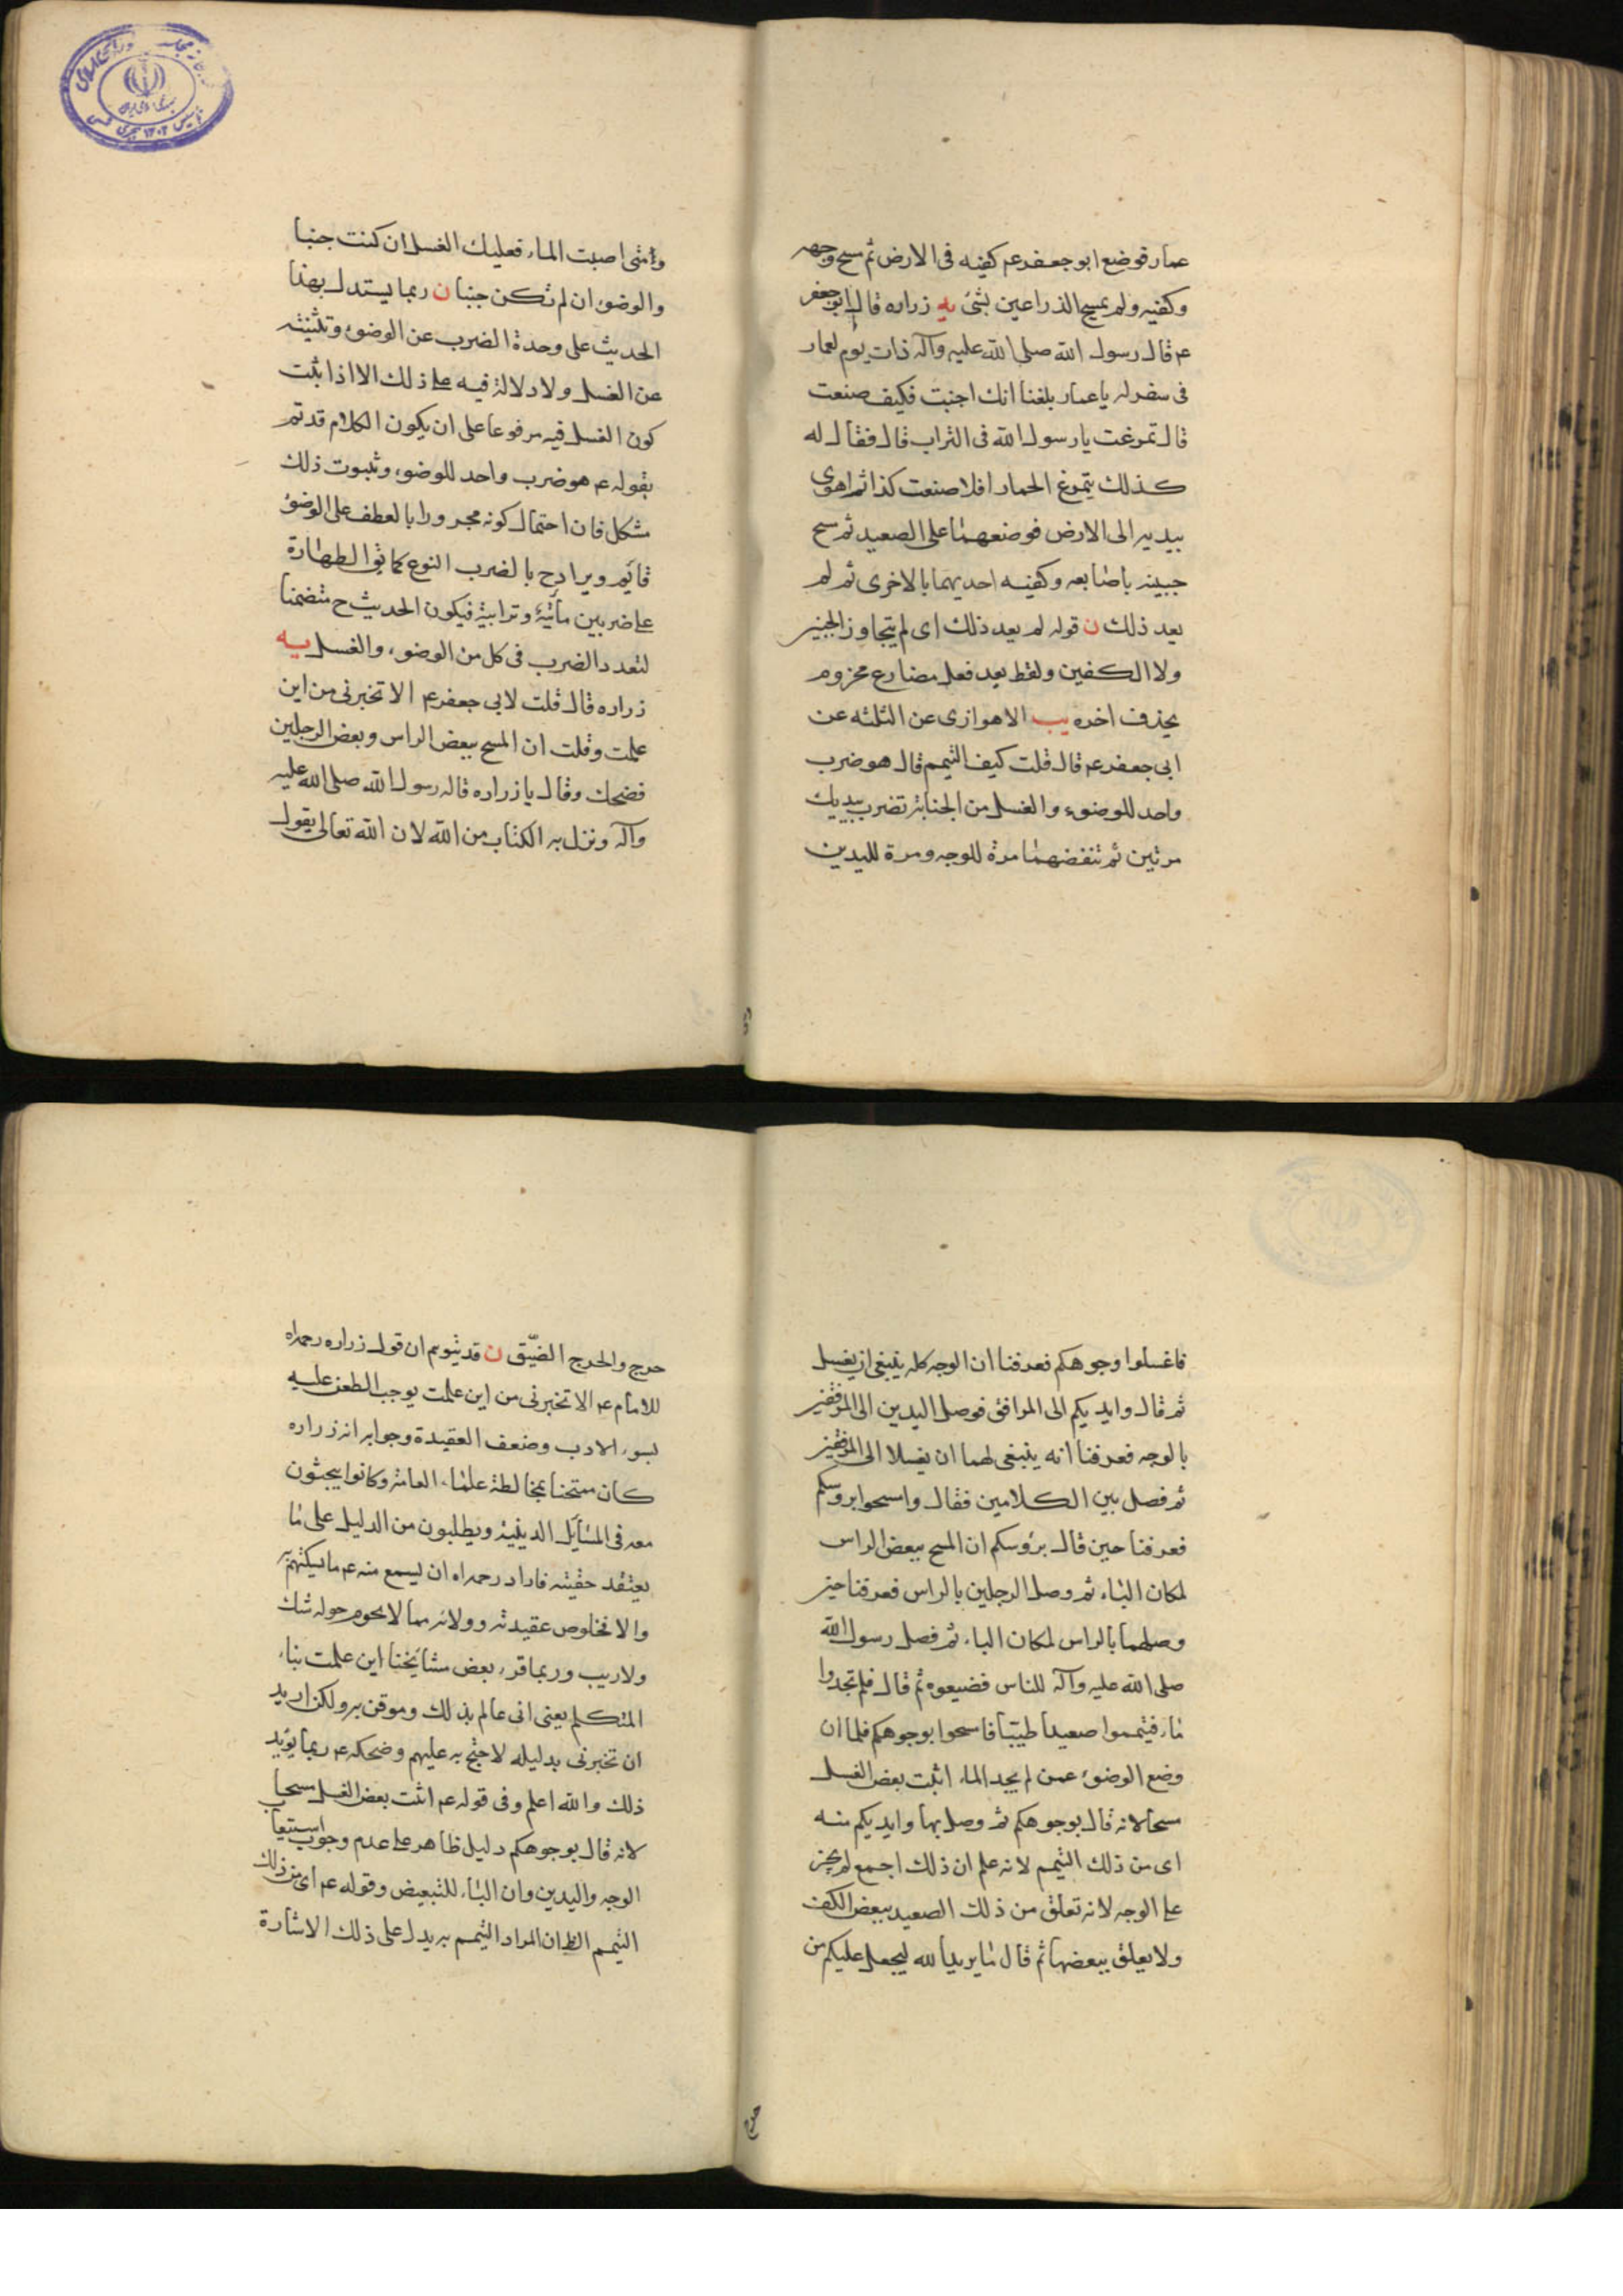 عمار فوضع ابو جعفر ع كفيه فى الارض ثم مسح وجهه
وكفيه ولم يمسح الذراعين بشئ يه زراره قال ابو جعفر
ع قال رسول الله صلى الله عليه وآله ذات يوم لعمار
فى سفر له يا عمار بلغنا انك اجنبت فكيف صنعت
قال تمرغت يا رسول الله فى التراب قال فقال له
كذلك يتمرغ الحمار افلا صنعت كذا ثم اهوى
بيديه الى الارض فوضعهما على الصعيد ثم مسح
جبينه باصابعه وكفيه احديهما بالاخرى ثم لم
يعد ذلك ن قوله لم يعد ذلك اى لم يتجاوز الجبين
ولا الكفين ولفظ يعد فعل مضارع مجزوم
بحذف اخره يب الاهوازى عن الثلثه عن
ابى جعفر ع قال قلت كيف التيمم قال هو ضرب
واحد للوضوء والغسل من الجنابة تضرب بيديك
مرتين ثم تنفضهما مرة للوجه ومرة لليدين
ومتى اصبت الماء فعليك الغسل ان كنت جنبا
والوضوء ان لم تكن جنبا ن ربما يستدل بهذا
الحديث على وحدة الضرب عن الوضوء وتثنيته
عن الغسل ولا دلالة فيه على ذلك الا اذا ثبت
كون الغسل فيه مرفوعا على ان يكون الكلام قد تم
بقوله ع هو ضرب واحد للوضوء وثبوت ذلك
مشكل فان احتمال كونه مجرورا بالعطف على الوضوء
قائم ويراد ح بالضرب النوع كما يق الطهارة
على ضربين مائية وترابية فيكون الحديث ح متضمنا
لتعدد الضرب فى كل من الوضوء والغسل يه
زراره قال قلت لابى جعفر ع الا تخبرنى من اين
علمت وقلت ان المسح ببعض الراس وبعض الرجلين
فضحك وقال يا زراره قاله رسول الله صلى الله عليه
وآله ونزل به الكتاب من الله لان الله تعالى يقول
فاغسلوا وجوهكم فعرفنا ان الوجه كله ينبغى ان يغسل
ثم قال وايديكم الى المرافق فوصل اليدين الى المرفقين
بالوجه فعرفنا انه ينبغى لهما ان يغسلا الى المرفقين
ثم فصل بين الكلامين فقال وامسحوا بروسكم
فعرفنا حين قال برؤسكم ان المسح ببعض الراس
لمكان الباء ثم وصل الرجلين بالراس فعرفنا حين
وصلهما بالراس لمكان الباء ثم فصل رسول الله
صلى الله عليه وآله للناس فضيعوه ثم قال فلم تجدوا
ماء فتيمموا صعيدا طيبا فامسحوا بوجوهكم فلما ان
وضع الوضوء عمن لم يجد الماء اثبت بعض الغسل
مسحا لانه قال بوجوهكم ثم وصل بها وايديكم منه
اى من ذلك التيمم لانه علم ان ذلك اجمع لم يجز
على الوجه لانه تعلق من ذلك الصعيد ببعض الكف
ولا يعلق ببعضها ثم قال ما يريد الله ليجعل عليكم من
حرج والحرج الضيّق ن قد يتوهم ان قول زراره رحمه الله
للامام ع الا تخبرنى من اين علمت يوجب الطعن عليه
بسوء الادب وضعف العقيدة وجوابه ان زراره
كان ممتحنا بمخالطة علماء العامة وكانوا يبحثون
معه فى المسايل الدينية ويطلبون من الدليل على ما
يعتقد حقيته فاراد رحمه الله ان يسمع منه ع ما يسكتهم به
والا فخلوص عقيدته وولائه مما لا يحوم حوله شك
ولا ريب وربما قرء بعض مشايخنا اين علمت بتاء
المتكلم يعنى انى عالم بذلك وموقن به ولكن اريد
ان تخبرنى بدليله لاحتج به عليهم وضحكه ع ربما يؤيد
ذلك والله اعلم وفى قوله ع اثبت بعض الغسل مسحا
لانه قال بوجوهكم دليل ظاهر على عدم وجوب استيعاب
الوجه واليدين وان الباء للتبعيض وقوله ع اى من ذلك
التيمم الظ ان المراد التيمم به يدل على ذلك الاشارة